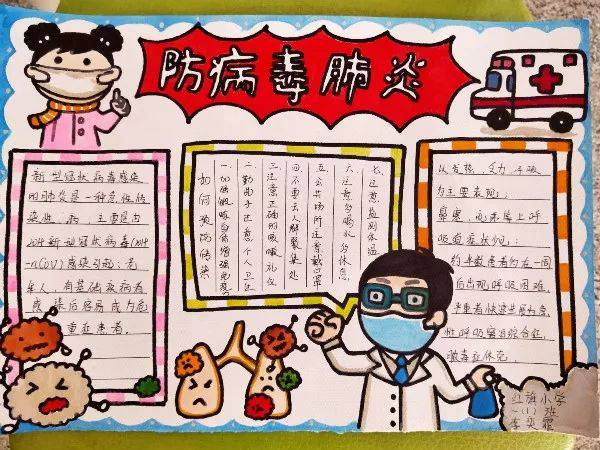 防病毒肺炎
新型冠状病毒感染
的肺炎是一种急性传
染性肺 主要是由
2019新型冠状病毒(2019
-nCoV)感染引起;老
年人、有基础疾病者
感染后容易成为危
重症患者。
如何预防传染
一.加强锻炼身体增强免疫
二.勤洗手注意个人卫生
三.注意正确的咳嗽礼仪
四.不要去人群聚集处
五.公共场所注意戴口罩
六.注意多喝水多休息
七.注意监测体温
以发热 乏力 干咳
为主要表现,
鼻塞、流涕等上呼
吸道症状少见;
约半数患者约在一周
后出现呼吸困难,
严重者快速进展为急
性呼吸窘迫综合症,
脓毒症休克
红旗小学
一(1)班
李奕霏